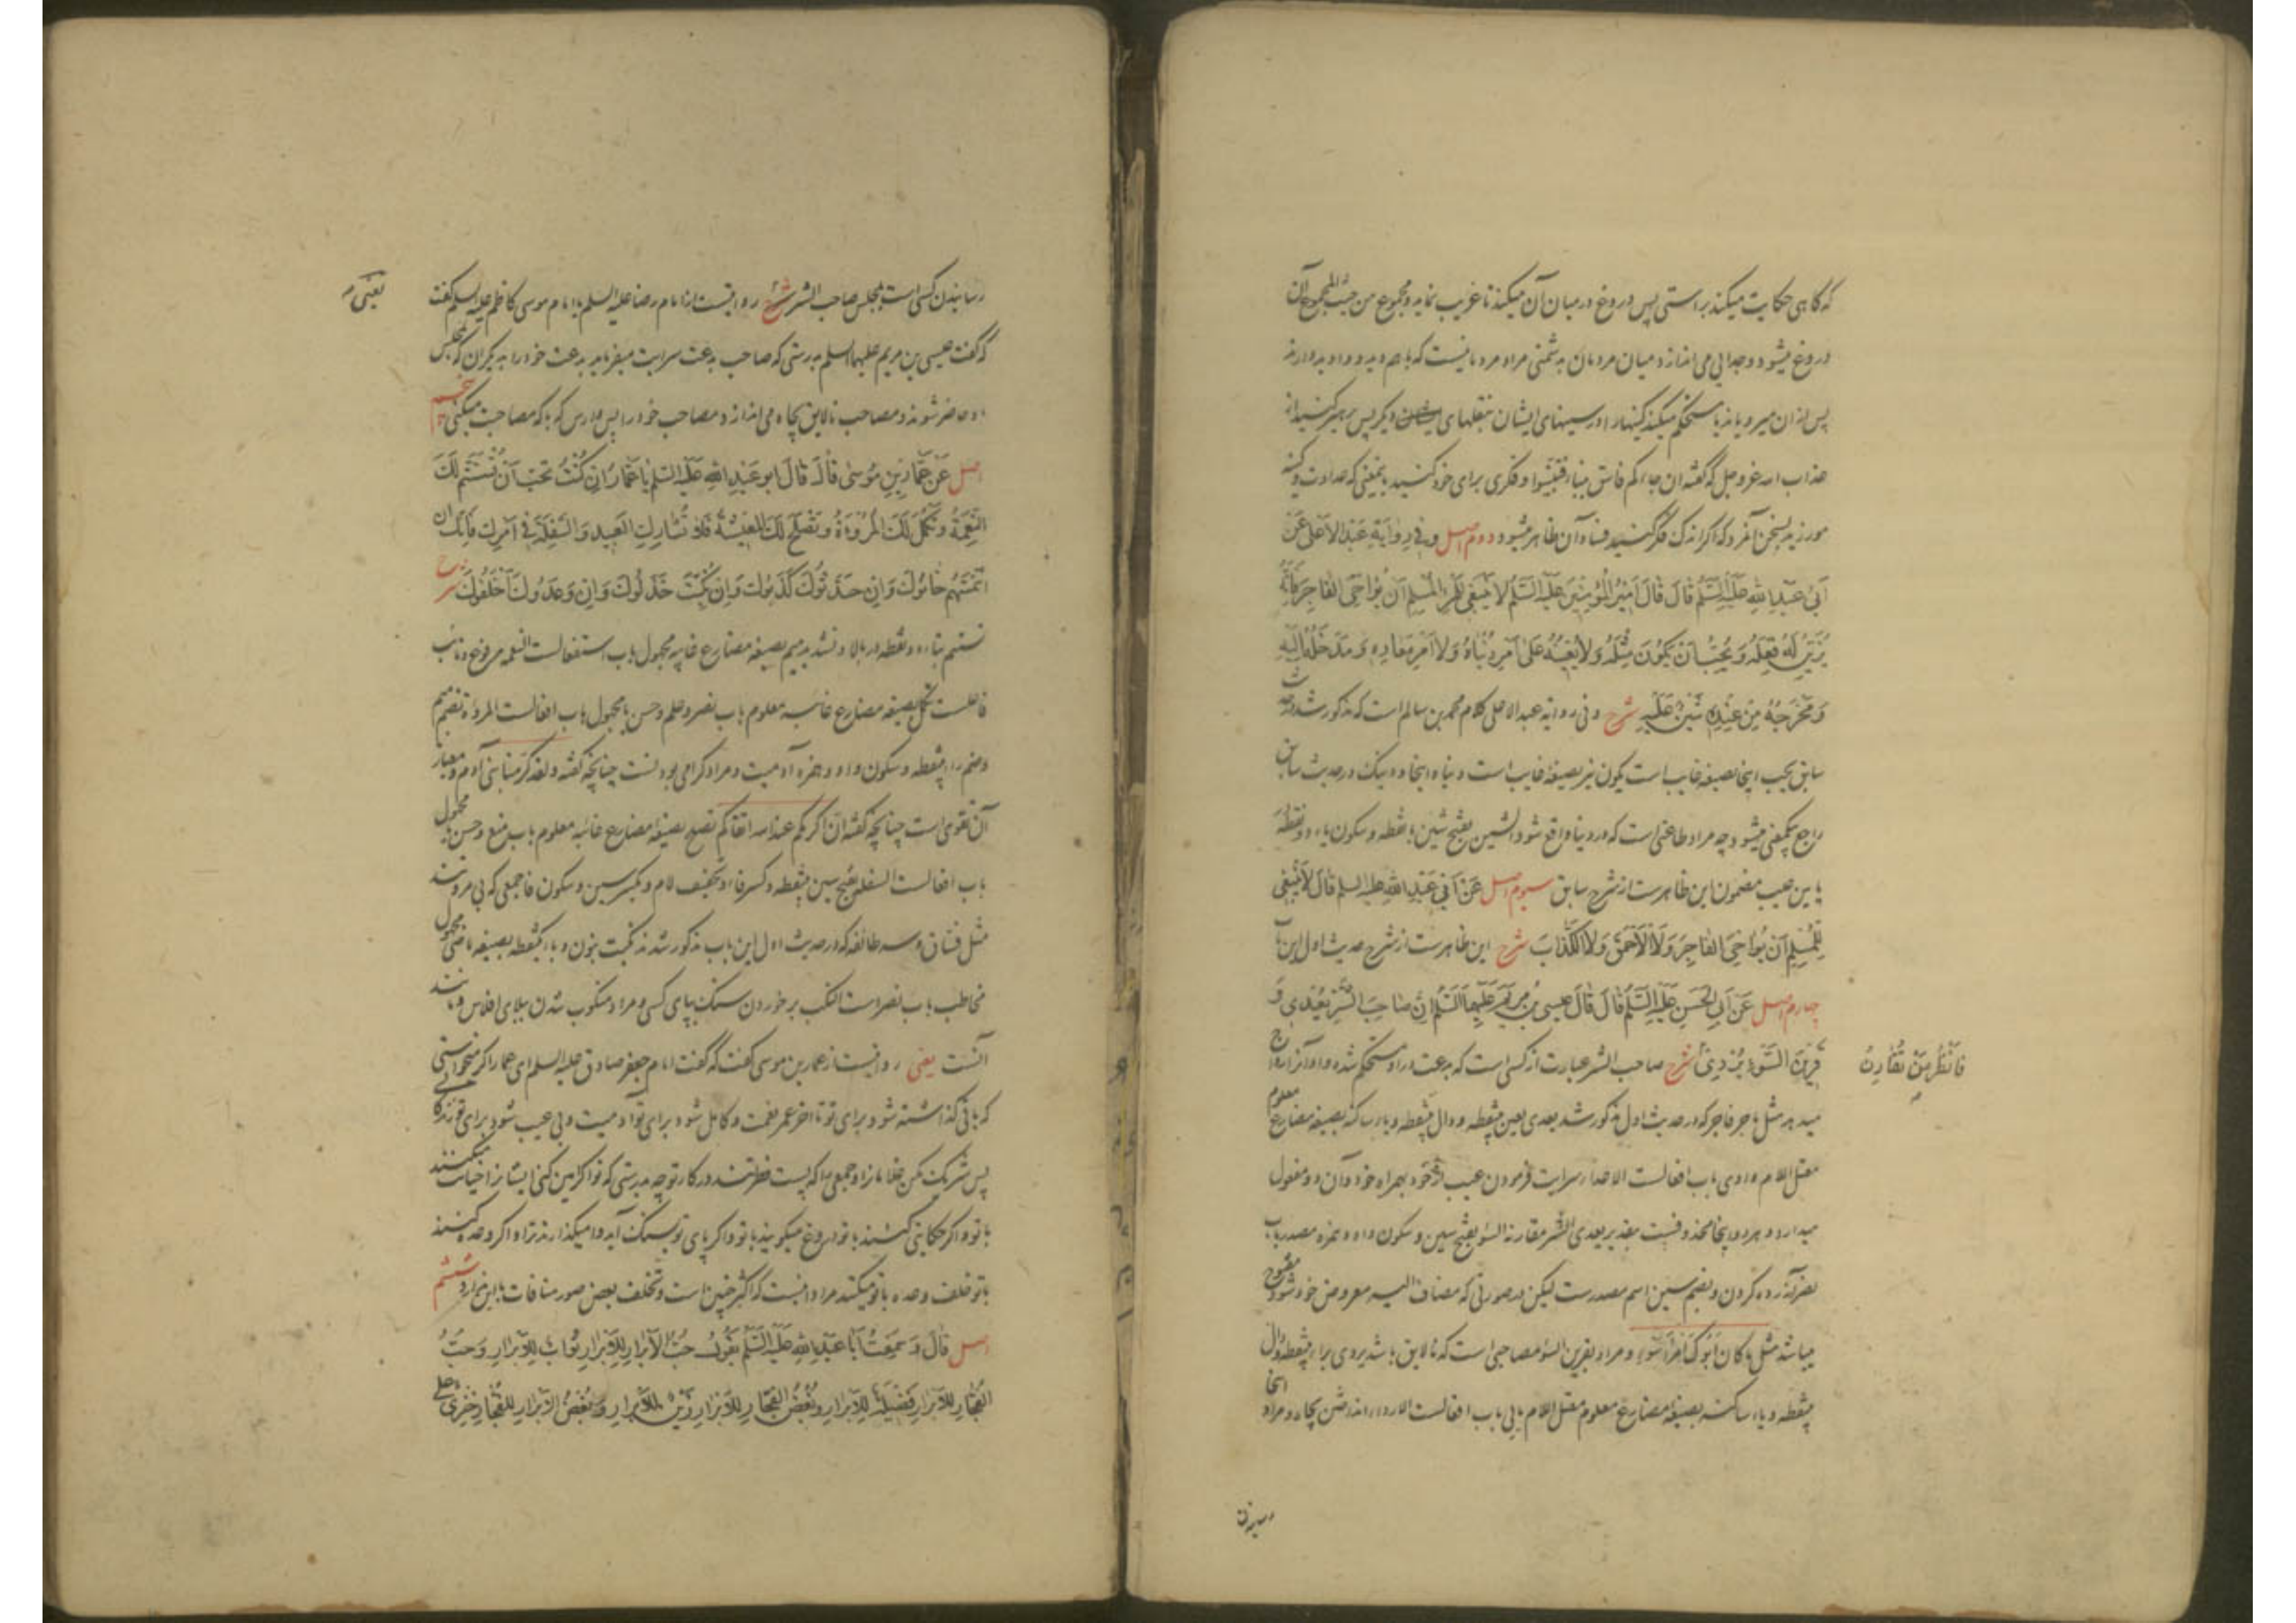 که گاهی حکایت میکند براستی پس دروغ در میان آن میکند تا غریب نماید و مجموع من حیث المجموع آن
دروغ میشود و جدایی می اندازد میان مردمان بدشمنی مراد مردمانیست که باهم دیده و واد ید دارند
پس از آن میرویاند یا مستحکم میکند کینها را در سینهای ایشان بنقلهای دیگر پس پرهیز کنید از
عذاب الله عز و جل که گفته ان جاءکم فاسق بنباء فتبینوا و فکری برای خود کنید بمعنی که عداوت و کینه
مورزید بسخن آمر و که اگر اندک فکر کنید فساد آن ظاهر میشود دوم اصل و فی روایة عبد الاعلی عن
ابی عبد الله علیه السلم قال قال امیر المؤمنین علیه السلم لا ینبغی للمرء المسلم ان یواخی الفاجر فانه
یزین له فعله و یحب ان یکون مثله و لا یعینه علی امر دنیاه و لا امر معاده و مدخله الیه
و مخرجه من عنده شین علیه شرح و فی روایة عبد الاعلی کلام محمد بن سالم است که مذکور شد در حدیث
سابق یحب اینجا بصیغه غایب است یکون نیز بصیغه غایب است دنیاه اینجا و دینک در حدیث سابق
راجع بیکمعنی میشود چه مراد طاعتی است که در دنیا واقع شود الشین بفتح شین با نقطه و سکون یاء دو نقطه
پایین عیب مضمون این ظاهرست از شرح سابق سیوم اصل عن ابی عبد الله علیه السلم قال لا ینبغی
للمسلم ان یواخی الفاجر و لا الاحمق و لا الکذاب شرح این ظاهرست از شرح حدیث اول این باب
چهارم اصل عن ابی الحسن علیه السلم قال قال عیسی بن مریم علیهما السلم ان صاحب الشر یعدی و
قرین السوء یردی شرح صاحب الشر عبارت از کسی است که بدعت در او مستحکم شده و او آنرا رواج
فانظر من تقارن
میدهد مثل ماجر فاجر که در حدیث اول مذکور شد یعدی بعین بینقطه و دال بینقطه و یاء ساکنه بصیغه مضارع معلوم
معتل اللام واوی باب افعالست الاعداء سرایت فرمودن عیب خود بهمراه خود و آن دو مفعول
میدارد و هر دو اینجا محذوفست بتقدیر یعدی الشر مقارنه السوء بفتح سین و سکون واو و همزه مصدر باب
نصر آزرده کردن و بضم سین اسم مصدرست لیکن در صورتی که مضاف الیه معروض خود شود مفتوح
میباشد مثل ما کان ابوک امرأ سوء و مراد بقرین السوء مصاحبی است که نالایق باشد یردی براء بینقطه و دال
بینقطه و یاء ساکنه بصیغه مضارع معلوم معتل اللام یایی باب افعالست الارداء انداختن بچاه و مراد اینجا
رسانیدن
رسانیدن کسی است بمجلس صاحب الشر شرح روایتست از امام رضا علیه السلم یا امام موسی کاظم علیه السلم گفت
یعنی
که گفت عیسی بن مریم علیهما السلم بدرستی که صاحب بدعت سرایت میفرماید بدعت خود را بدیگران که بمجلس
او حاضر شوند و مصاحب نالایق بچاه می اندازد مصاحب خود را پس وارس که با که مصاحبت میکنی پنجم
اصل عن عمار بن موسی قال قال ابو عبد الله علیه السلم یا عمار ان کنت تحب ان تستتم لک
النعمة و تکمل لک المروءة و تصلح لک المعیشة فلا تشارک العبید و السفلة فی امرک فانک ان
ائتمنتهم خانوک و ان حدثوک کذبوک و ان نکبت خذلوک و ان وعدوک اخلفوک شرح
تستتم بتاء دو نقطه در بالا و تشدید میم بصیغه مضارع غایبه مجهول باب استفعالست النعمه مرفوع و نایب
فاعلست تکمل بصیغه مضارع غایبه معلوم باب نصر و علم و حسن یا مجهول باب افعالست المروءة بضم میم
و ضم راء بینقطه و سکون واو و همزه آدمیت و مراد گرامی بودنست چنانچه گفته و لقد کرمنا بنی آدم و معیار
آن تقوی است چنانچه گفته ان اکرمکم عند الله اتقاکم تصلح بصیغه مضارع غایبه معلوم باب منع و حسن یا مجهول
باب افعالست السفله بفتح سین بینقطه و کسر فاء و تخفیف لام و بکسر سین و سکون فا جمعی که بی مروتند
مثل فساق و سه طائفه که در حدیث اول این باب مذکور شدند نکبت بنون و باء یکنقطه بصیغه ماضی مجهول
مخاطب باب نصرست النکب برخوردن سنگ بپای کسی و مراد منکوب شدن ببلای افلاس و مانند
آنست یعنی روایتست از عمار بن موسی گفت که گفت امام جعفر صادق علیه السلم ای عمار اگر میخواستی
که باقی گذاشته شود برای تو تا اخر عمر نعمت و کامل شود برای تو آدمیت و بی عیب شود برای تو زندگانی
پس شریک مکن غلامانرا و جمعی را که پست فطرتند در کار تو چه بدرستی که تو اگر امین کنی ایشانرا خیانت میکنند
با تو و اگر حکایتی کنند با تو دروغ میگویند با تو و اگر پای تو بسنگ آید وا میگذارند ترا و اگر وعده کنند
با تو خلف وعده با تو میکنند مراد اینست که اکثر چنین است و تخلف بعض صور منافات با این ندارد ششم
اصل قال و سمعت ابا عبد الله علیه السلم یقول حب الابرار للابرار ثواب للابرار و حب
الفجار للابرار فضیلة للابرار و بغض الفجار للابرار زین للابرار و بغض الابرار للفجار خزی علی